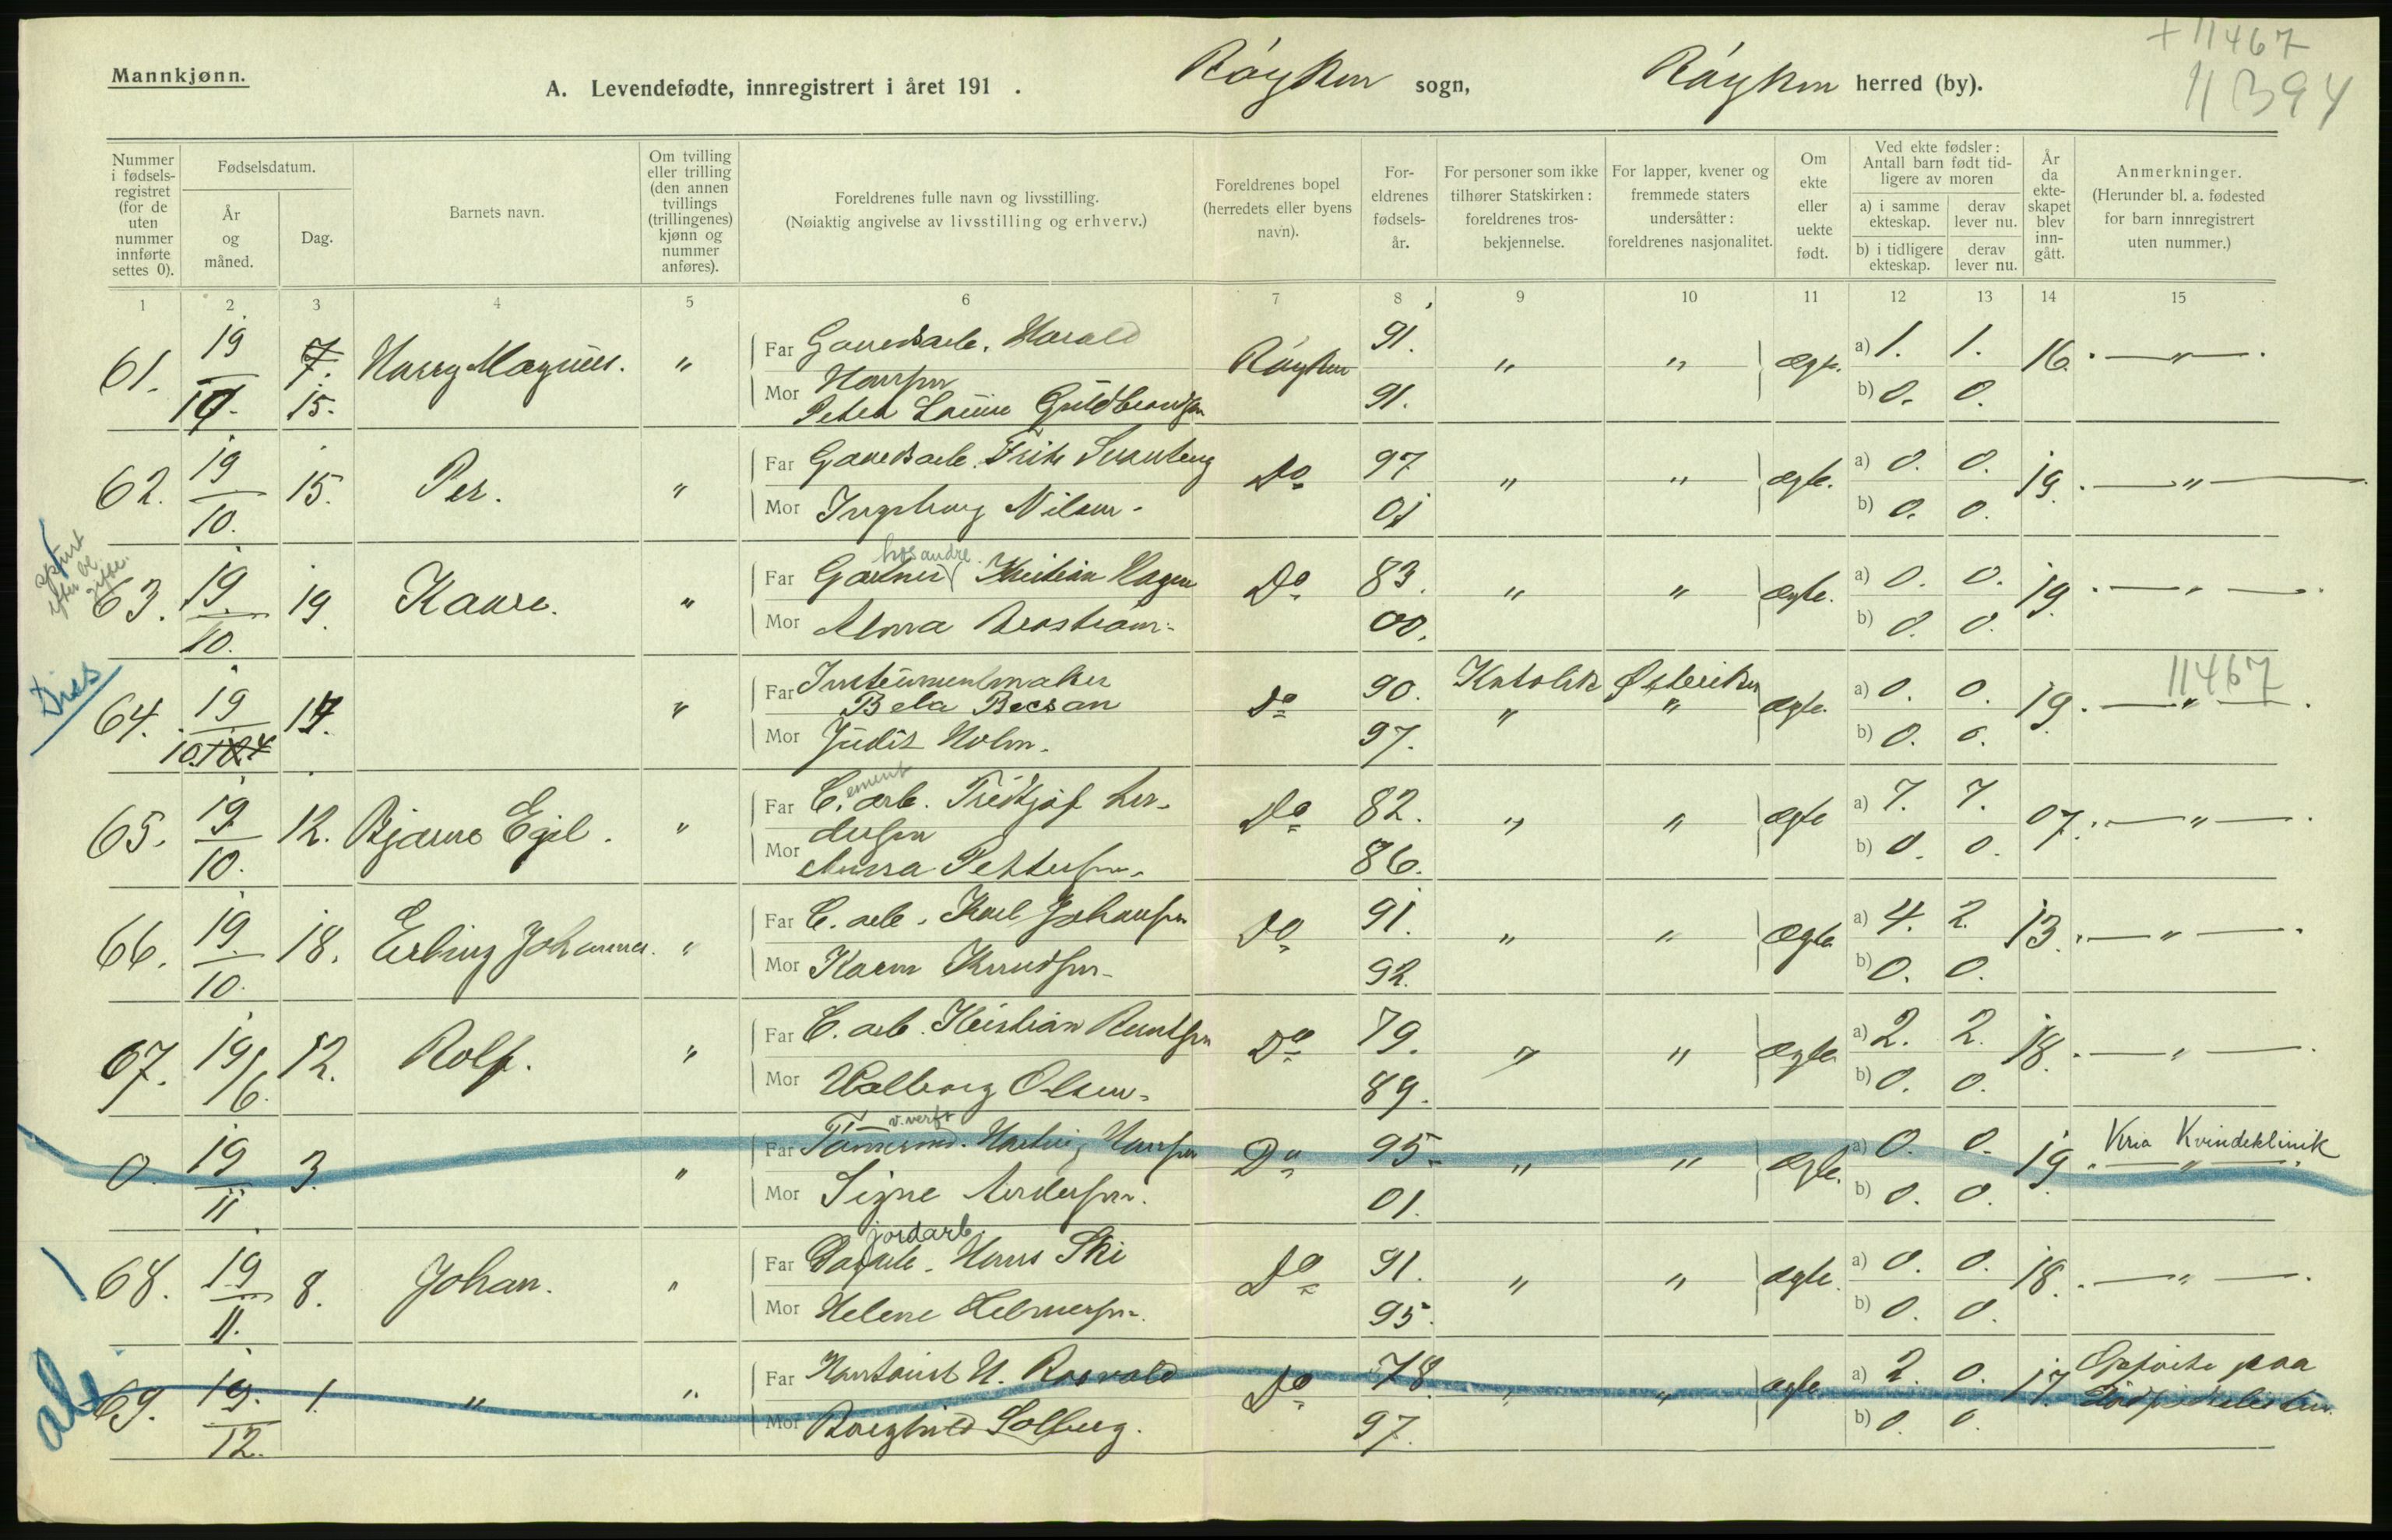 + 11467
11394
Mannkjønn.
A. Levendefødte, innregistrert i året 191 . Røyken sogn, Røyken herred (by).
Nummer i fødsels-registret (for de uten nummer innførte settes 0).
Fødselsdatum.
År og måned.
Dag.
Barnets navn.
Om tvilling eller trilling (den annen tvillings (trillingenes) kjønn og nummer anføres).
Foreldrenes fulle navn og livsstilling.
(Nøiaktig angivelse av livsstilling og erhverv.)
Foreldrenes bopel (herredets eller byens navn).
For-eldrenes fødsels-år.
For personer som ikke tilhører Statskirken: foreldrenes tros-bekjennelse.
For lapper, kvener og fremmede staters undersåtter: foreldrenes nasjonalitet.
Om ekte eller uekte født.
Ved ekte fødsler: Antall barn født tid-ligere av moren
a) i samme ekteskap. derav lever nu.
b) i tidligere ekteskap. derav lever nu.
År da ekte-skapet blev inn-gått.
Anmerkninger.
(Herunder bl. a. fødested for barn innregistrert uten nummer.)
1 2 3 4 5 6 7 8 9 10 11 12 13 14 15
61. 19/10. 7. 15. Harry Magnus. " Far Gaardsarb. Harald Røyken 91. " " ægte. a) 1. 1. 16. — " —
Hansen
Mor Petra Louise Guldbrandsen 91. b) 0. 0.
62. 19/10. 15. Per. " Far Gaardsarb. Frits Do 97 " " ægte. a) 0. 0. 19. — " —
Mor Ingeborg Nilsen. 01 b) 0. 0.
hos andre
63. 19/10. 19. Kaare. " Far Gartner Kristian Hagen Do 83. " " ægte. a) 0. 0. 19. — " —
Mor Alma 00. b) 0. 0.
Dies
11467
64. 19/10. " Far Instrumentmaker Do 90. Katolsk Østeriker ægte. a) 0. 0. 19. — " —
Bela Becsan " "
Mor Judit Holm. 97. b) 0. 0.
ement
65. 19/10. 12. Bjarne Egil. " Far C. arb. Fredtjof An- Do 82. " " ægte a) 7. 7. 07. — " —
dersen
Mor Anna Pettersen. 86. b) 0. 0.
66. 19/10. 18. Erling Johannes. " Far C. arb. Karl Johansen Do 91. " " ægte a) 4. 2. 13. — " —
Mor Karen Knudsen. 92. b) 0. 0.
67. 19/6. 12. Rolf. " Far C. arb. Kristian Do 79. " " ægte a) 2. 2. 18. — " —
Mor Valborg Olsen. 89. b) 0. 0.
v. verft
0. 19/11 3. " Far Tømmermd. Hartvig Hansen Do 95. " " ægte. a) 0. 0. 19. Kria Kvindeklinik
Mor Signe Andersen. 01. b) 0. 0. — " —
jordarb.
68. 19/11. 8. Johan. " Far Hans Ski Do 91. " " ægte. a) 0. 0. 18. — " —
Mor Helene Helmersen. 95. b) 0. 0.
69. 19/12. 1. " " Far Kontorist H. Rosvald Do 78. " " ægte a) 2. 0. 17. Opført paa
Mor Borghild Solberg. 97. b) 0. 0.